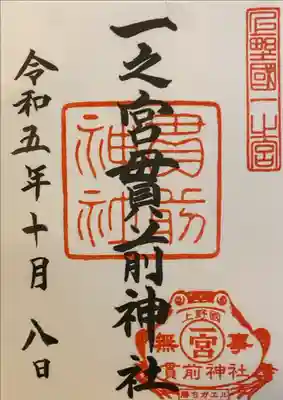 上野國一之宮
一之宮貫前神社
貫前
神社
令和五年十月八日
上野國
無 一宮 事
貫前神社
勝ちガエル